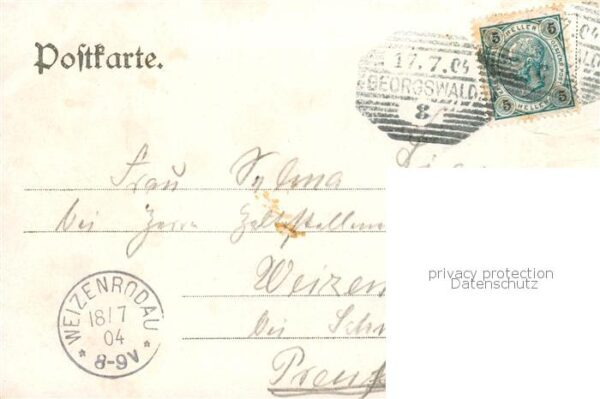 Postkarte.
17.7.04
GEORGSWALD
8
5 HELLER 5
5 HELLER 5
04
Frau Selma
bei Herrn
Weizen
bei Schw
Preuß
privacy protection
Datenschutz
WEIZENRODAU
18/7
04
* 8-9V *